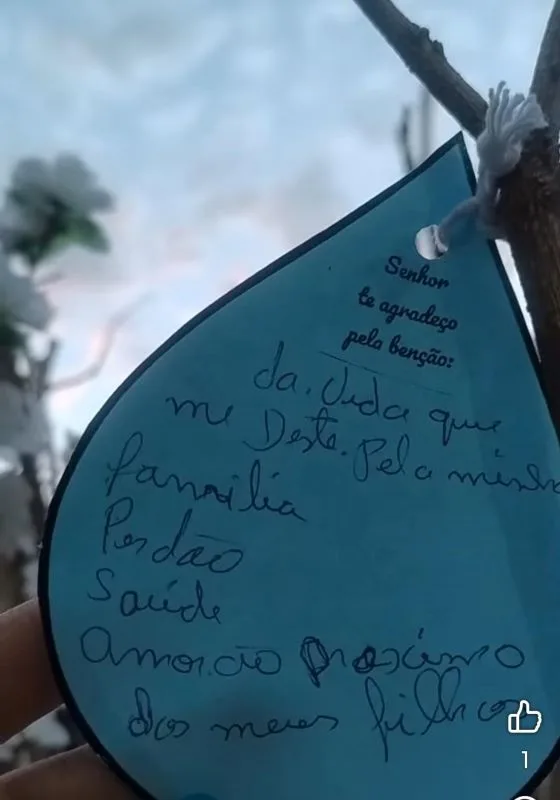 Senhor
te agradeço
pela benção:
da. Vida que
me Deste. Pela minha
família
Perdão
Saúde
Amor. ao Proximo
dos meus filhos
1